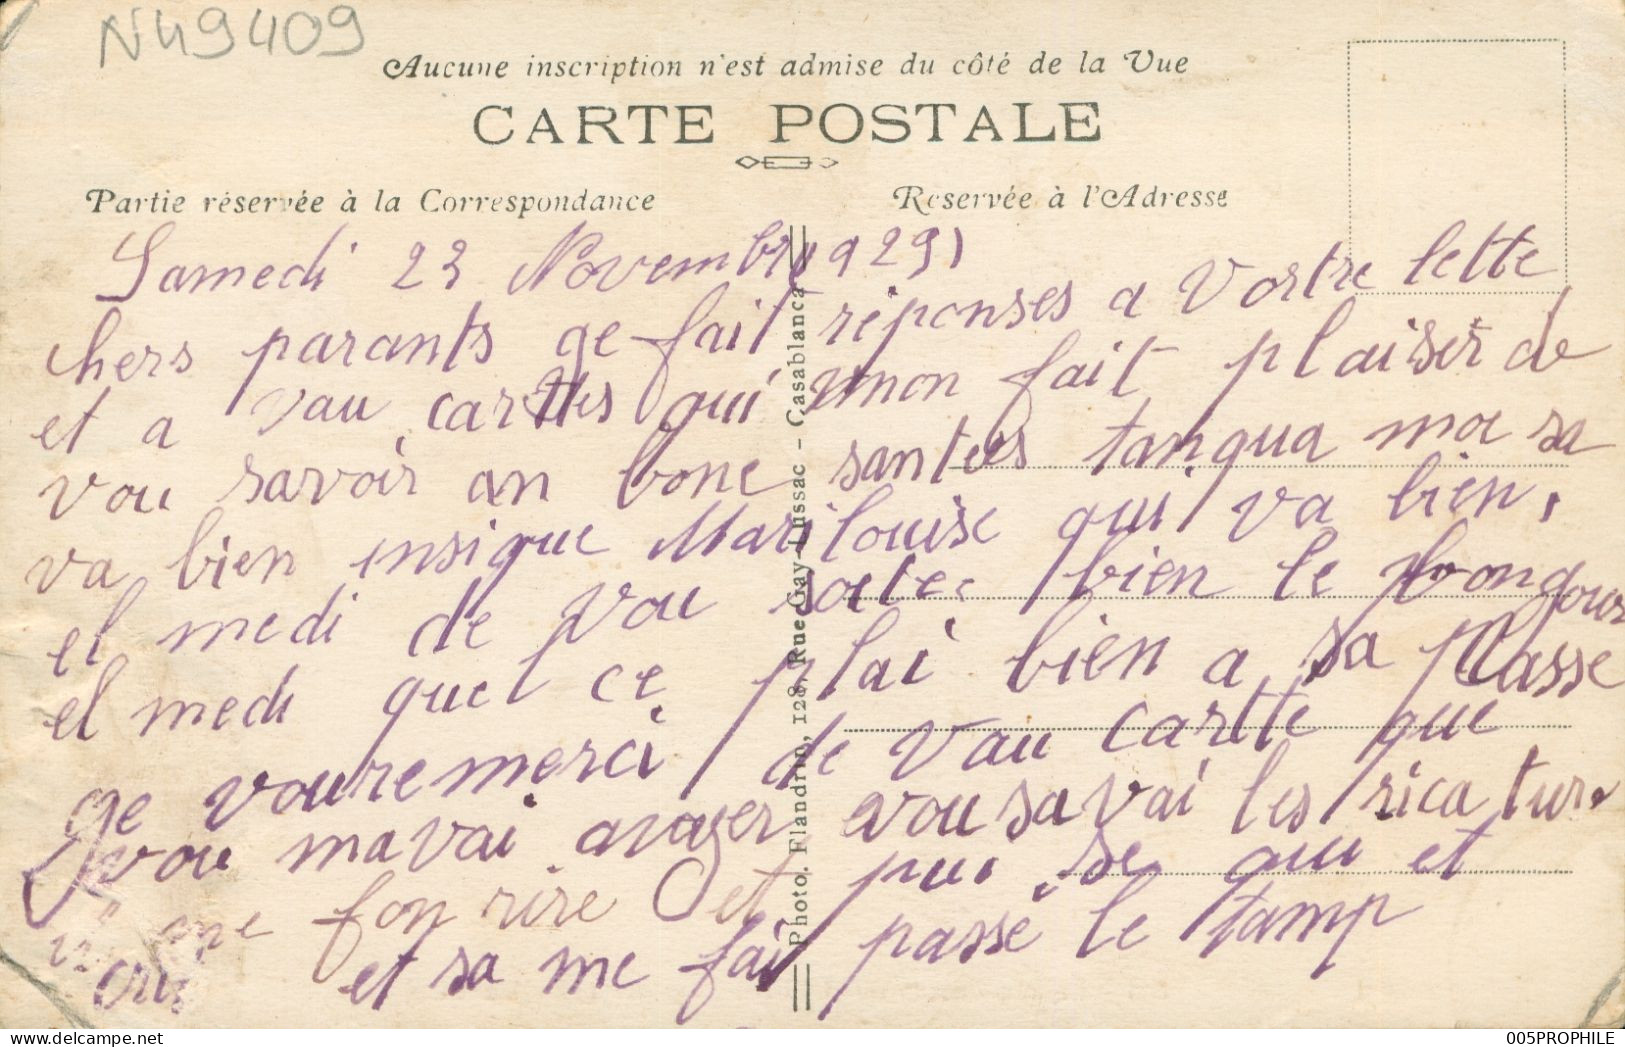 N49409
Aucune inscription n'est admise du côté de la Vue
CARTE POSTALE
Partie réservée à la Correspondance
Reservée à l'Adresse
Samedi 23 Novembre 1929
chers parants ge fait réponses a Vortre lette
et a vau carttes qui mon fait plaiser de
vou savoir an bone santées tanqua moi sa
va bien ensique Marilouise qui va bien,
el medi de vou soite bien le bongour
el medi quel ce plai bien a sa plasse
ge vouremerci de vau cartte que
vou mavai avayer vou savai les ricature
me fon rire et pui se qui et
et sa me fai passe le tamp
Photo. Flandrin, 128, Rue Gay-Lussac - Casablanca
005PROPHILE